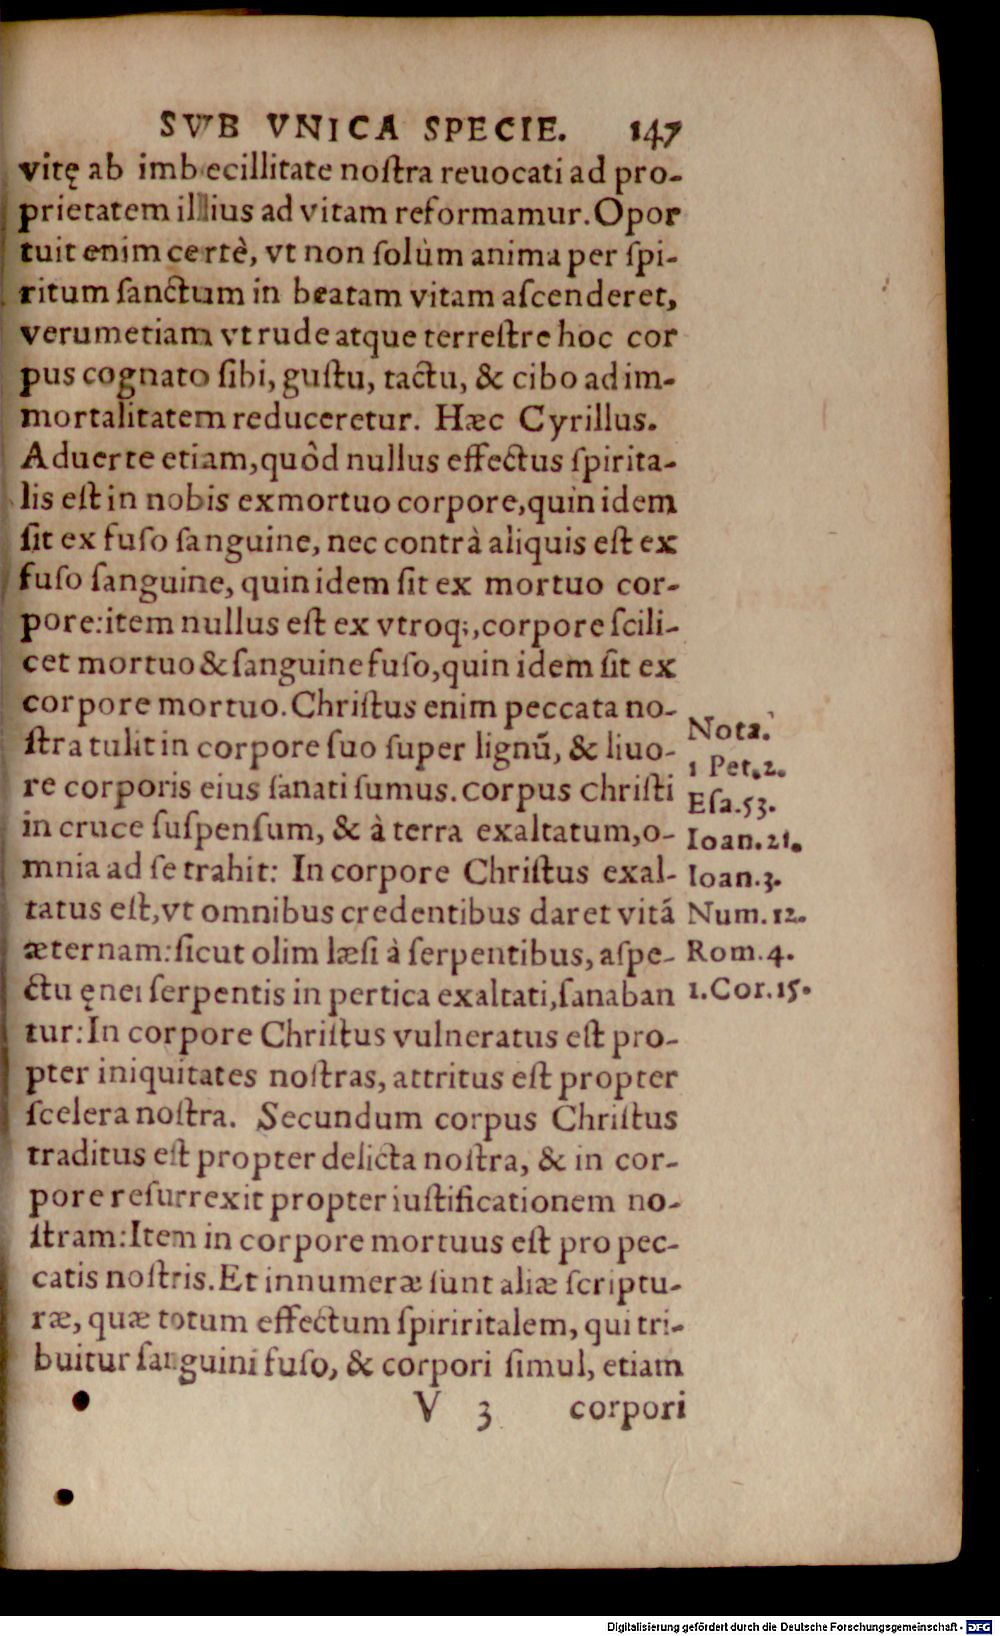 SVB VNICA SPECIE. 147
vitę ab imbecillitate noſtra reuocati ad pro-
prietatem illius ad vitam reformamur. Opor
tuit enim certè, vt non ſolùm anima per ſpi-
ritum ſanctum in beatam vitam aſcenderet,
verumetiam vt rude atque terreſtre hoc cor
pus cognato ſibi, guſtu, tactu, & cibo ad im-
mortalitatem reduceretur. Hæc Cyrillus.
Aduerte etiam, quôd nullus effectus ſpirita-
lis eſt in nobis ex mortuo corpore, quin idem
ſit ex fuſo ſanguine, nec contrà aliquis eſt ex
fuſo ſanguine, quin idem ſit ex mortuo cor-
pore: item nullus eſt ex vtroq;, corpore ſcili-
cet mortuo & ſanguine fuſo, quin idem ſit ex
corpore mortuo. Chriſtus enim peccata no-
ſtra tulit in corpore ſuo ſuper lignũ, & liuo-
re corporis eius ſanati ſumus. corpus chriſti
in cruce ſuſpenſum, & à terra exaltatum, o-
mnia ad ſe trahit: In corpore Chriſtus exal-
tatus eſt, vt omnibus credentibus daret vitã
æternam: ſicut olim læſi à ſerpentibus, aſpe-
ctu ęnei ſerpentis in pertica exaltati, ſanaban
tur: In corpore Chriſtus vulneratus eſt pro-
pter iniquitates noſtras, attritus eſt propter
ſcelera noſtra. Secundum corpus Chriſtus
traditus eſt propter delicta noſtra, & in cor-
pore reſurrexit propter iuſtificationem no-
ſtram: Item in corpore mortuus eſt pro pec-
catis noſtris. Et innumeræ ſunt aliæ ſcriptu-
ræ, quæ totum effectum ſpiriritalem, qui tri-
buitur ſanguini fuſo, & corpori ſimul, etiam
V 3 corpori
Nota.
1 Pet. 2.
Eſa. 53.
Ioan. 21.
Ioan. 3.
Num. 12.
Rom. 4.
1. Cor. 15.
Digitalisierung gefördert durch die Deutsche Forschungsgemeinschaft - DFG